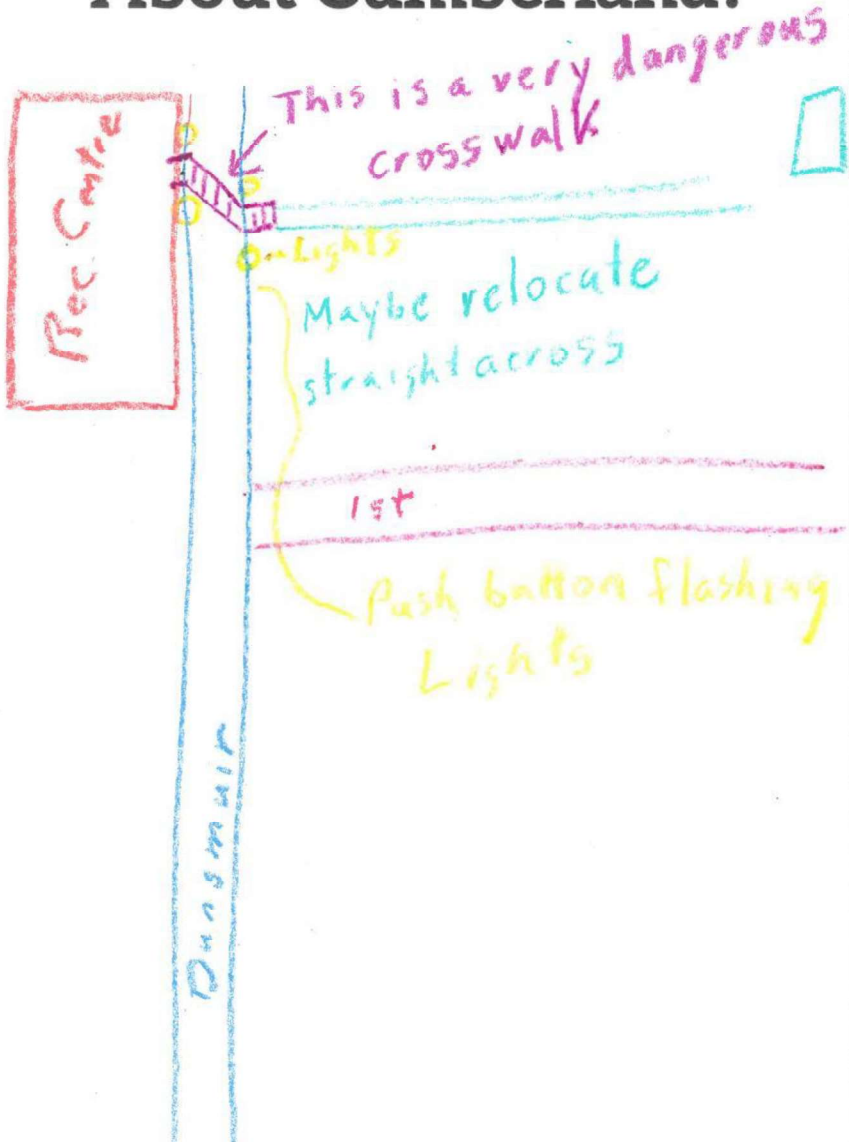 About Cumberland?
This is a very dangerous
crosswalk
Rec. Centre
Lights
Maybe relocate
straight across
1st
Push button flashing
Lights
Dunsmuir